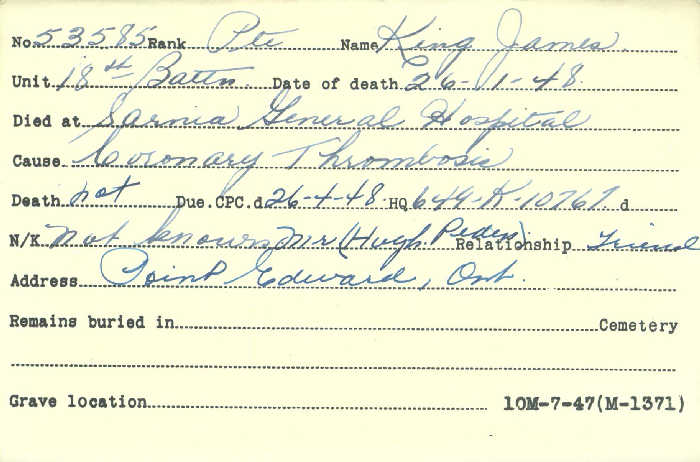 No. 53585 Rank Pte Name King James
Unit 18th Battn. Date of death 26-1-48.
Died at Sarnia General Hospital
Cause Coronary Thrombosis
Death not Due.CPC.d 26-4-48 HQ 649-K-10767. d
N/K Not known Mr (Hugh Peden) Relationship Friend
Address Point Edward, Ont.
Remains buried in Cemetery
Grave location 10M-7-47(M-1371)